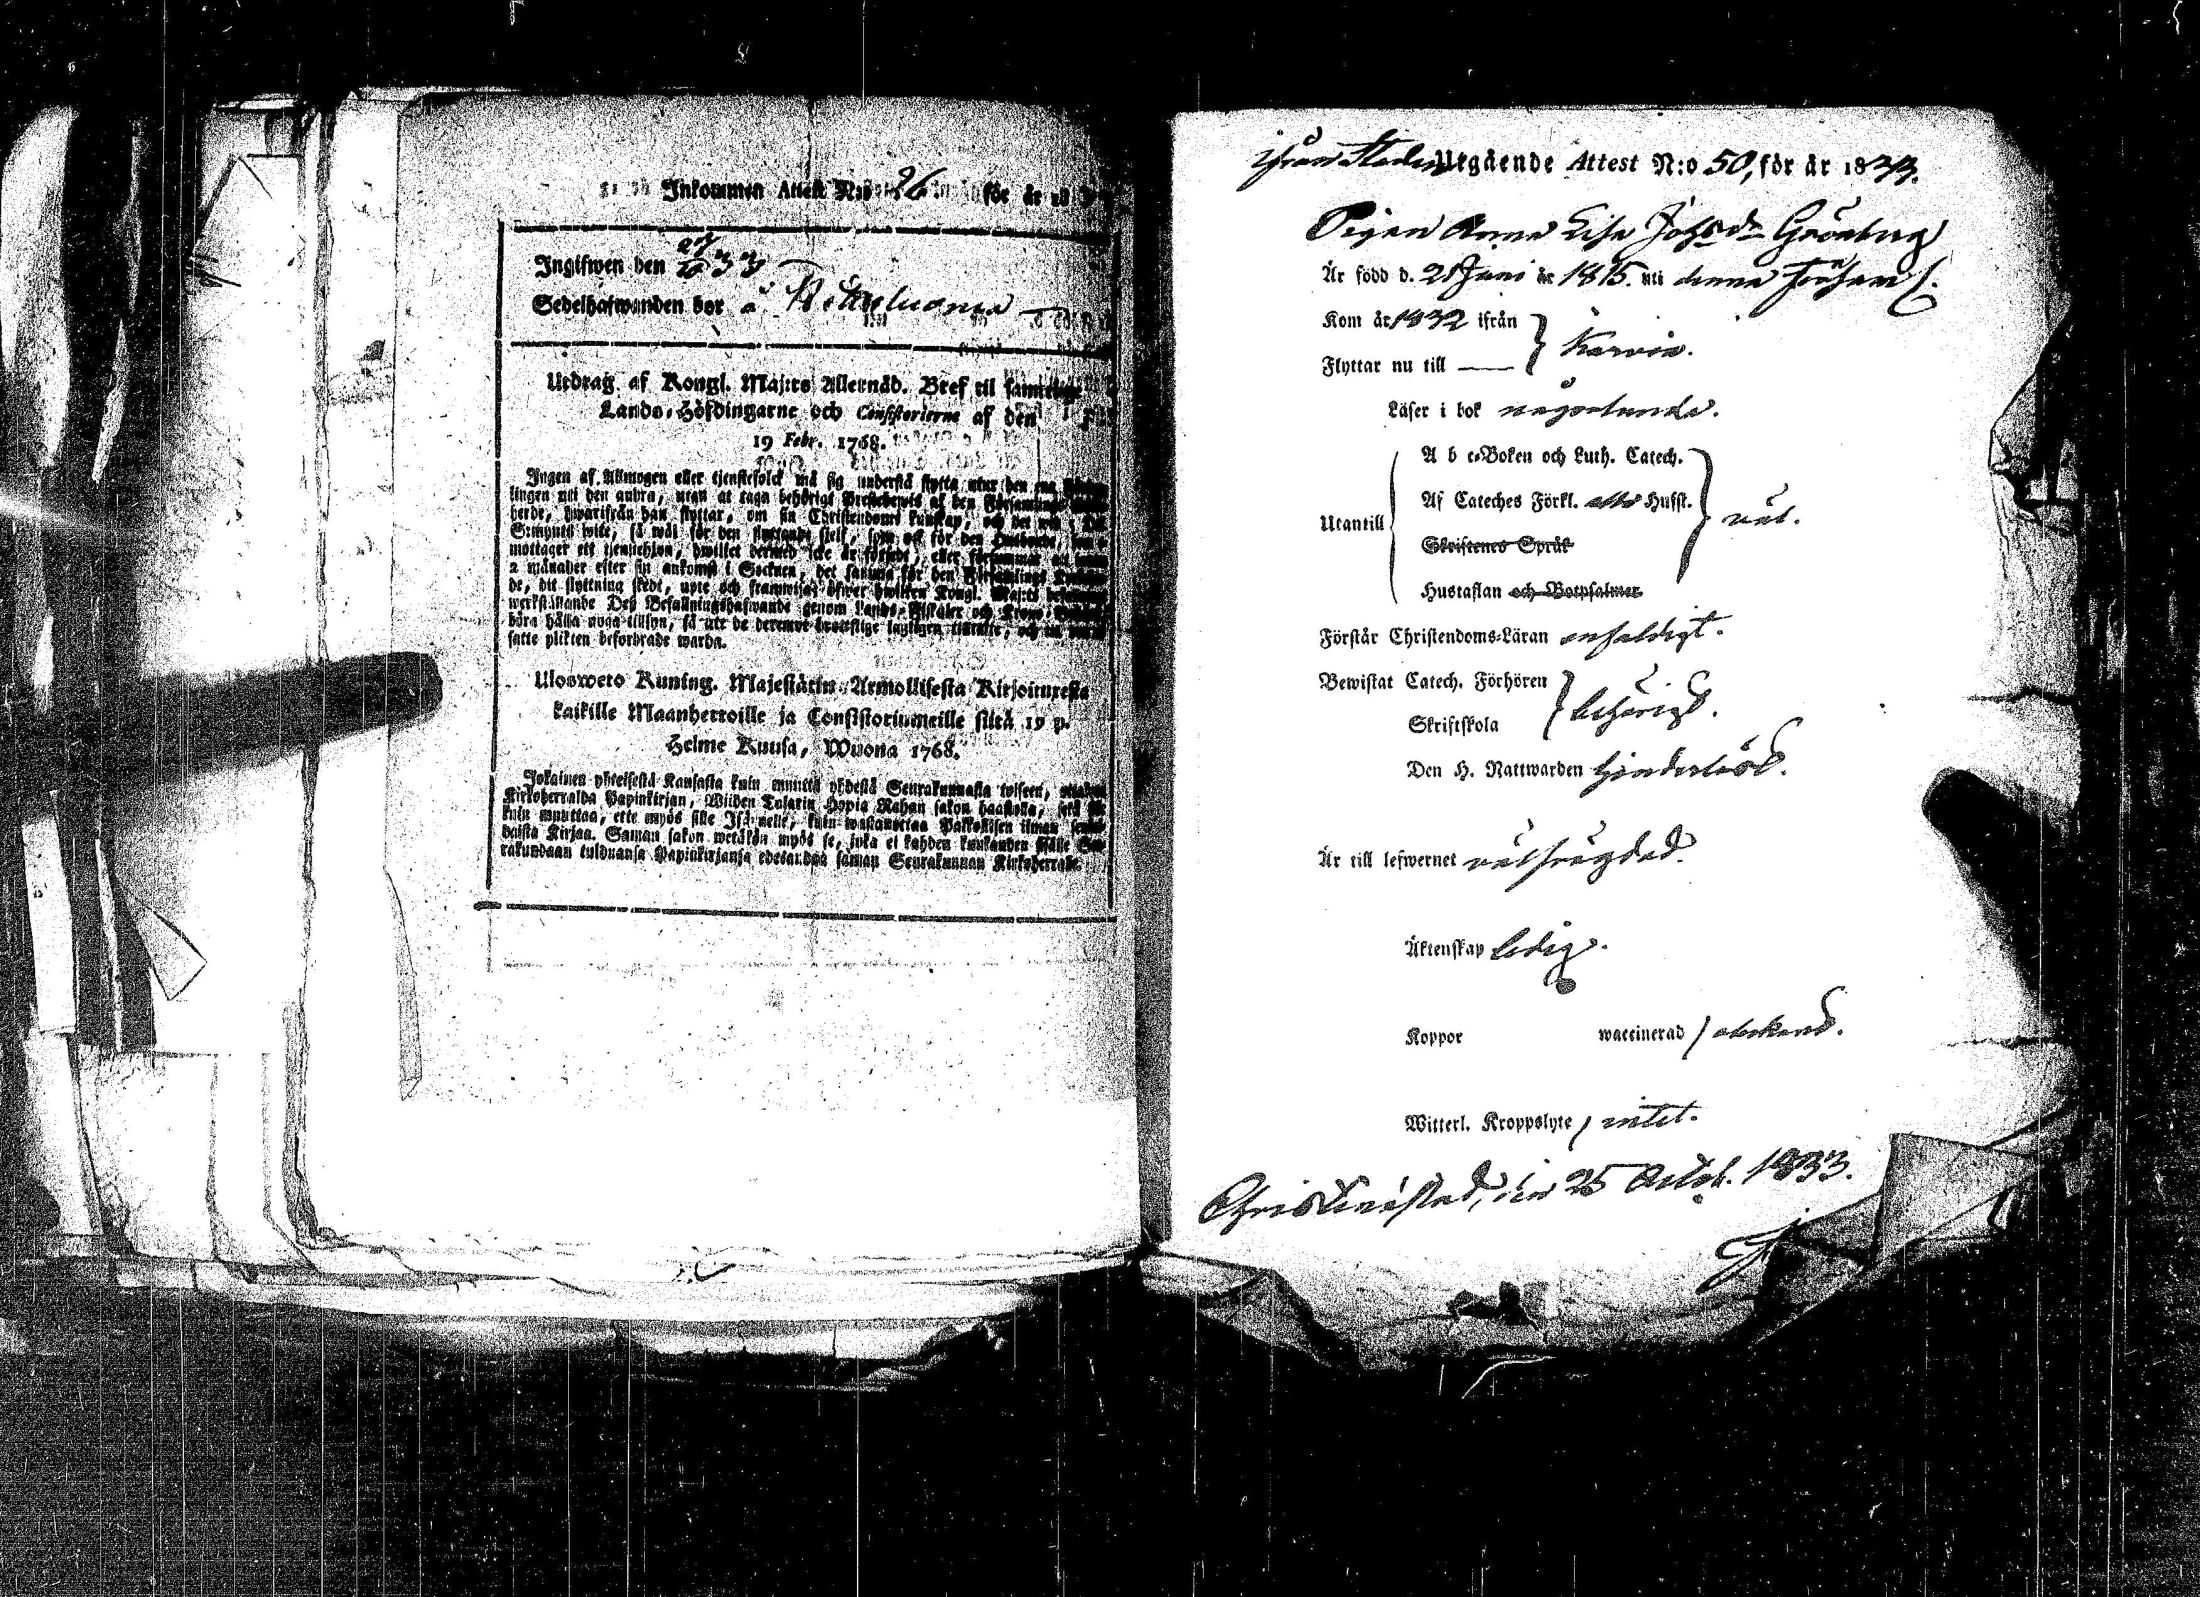 Inkommen Attest N:o 26 för år 18
Ingifwen den 27/10 33
Sedelhafwanden bor å
Utdrag af Kongl. Maj:ts Allernåd. Bref til samtelige
Lands-Höfdingarne och Consistorierne af den
19 Febr. 1768.
Ingen af Allmogen eller tjenstefolck må sig understå flytta utur den ena
lingen uti den andra, utan at taga behörigt Prestebewis af den Församlings
herde, hwarifrån han flyttar, om sin Christendoms kunskap, och det wid
S:mynts wite, så wäl för den flyttande sjelf, som ock för den
mottager ett tjensthjon, hwilket dermed icke är försedt, eller försummar
2 månader efter sin ankomst i Socknen, det samma för den Församlings
de, dit flyttning skedt, upte och framwisa; öfwer hwilken Kongl. Maj:ts
werkställande Des Befallningshafwande genom Lands-Fiskaler och
böra hålla noga tillsyn, så at de deremot brottslige lagligen tilltalte, och
satte plikten befordrade warda.
Ulosweto Kuning. Majestätin Armollisesta Kirjoituxesta
kaikille Maanherroille ja Consistoriumeille siitä 19 p.
Helme Kuusa, Wuona 1768.
Jokainen yhteisestä Kansasta kuin muutta yhdestä Seurakunnasta toiseen,
Kirkoherralda Papinkirjan, Wiiden Talarin Hopia Rahan sakon haastolla,
kuin muuttaa, ette myös sille Isännelle, kuin wastanottaa Palkollisen ilman
daista Kirjaa. Saman sakon wetäkön myös se, joka ei kahden kuukauden sisälle
rakundaan tulduansa Papinkirjansa edesandaa saman Seurakunnan Kirkoherralle.
ifrån Staden Utgående Attest N:o 50, för år 1833.
Pigan Anna Lisa Johsdr Grönberg
Är född d. 21 Juni år 1815. uti denna Församl.
Kom år 1832 ifrån
Karvia.
Flyttar nu till ——
Läser i bok någorlunda.
A b c-Boken och Luth. Catech.
Af Cateches Förkl. Husst.
Utantill
väl.
Skriftenes Språk
Hustaflan och Botpsalmer
Förstår Christendoms-Läran enfaldigt.
Bewistat Catech. Förhören
behörigt.
Skriftskola
Den H. Nattwarden hinderlöst.
Är till lefwernet välfrägdad.
Äktenskap ledig.
Koppor waccinerad, obekant.
Witterl. Kroppslyte, intet.
Christinestad, den 25 Octob. 1833.